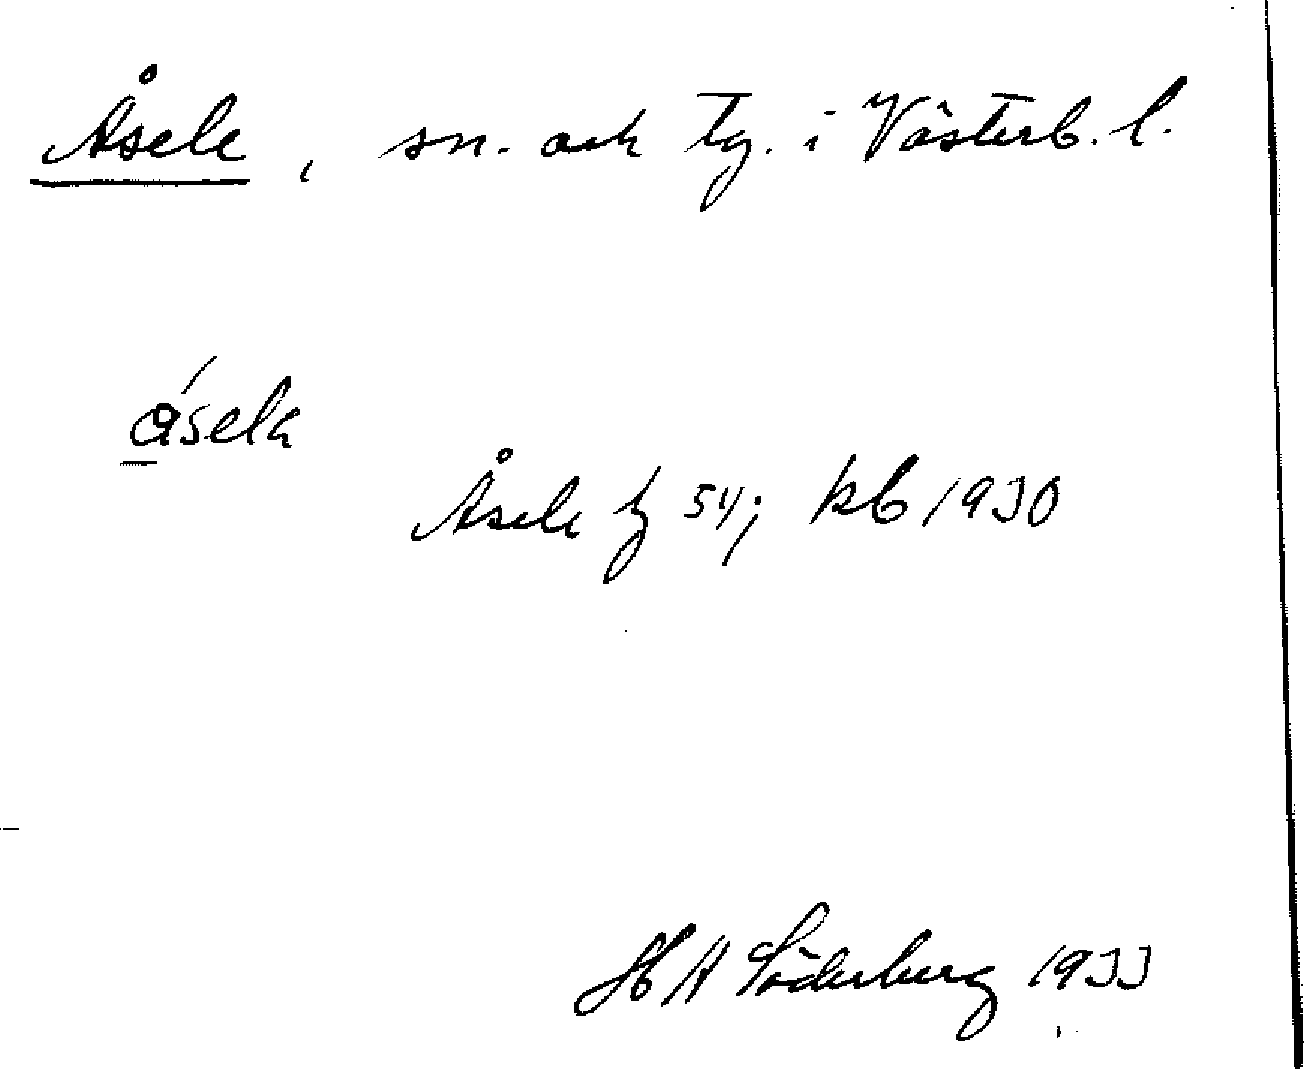 Åsele, sn. och tg. i Västerb. l.
åsela
Åsele fj 54; kb 1930
H A Söderberg 1933